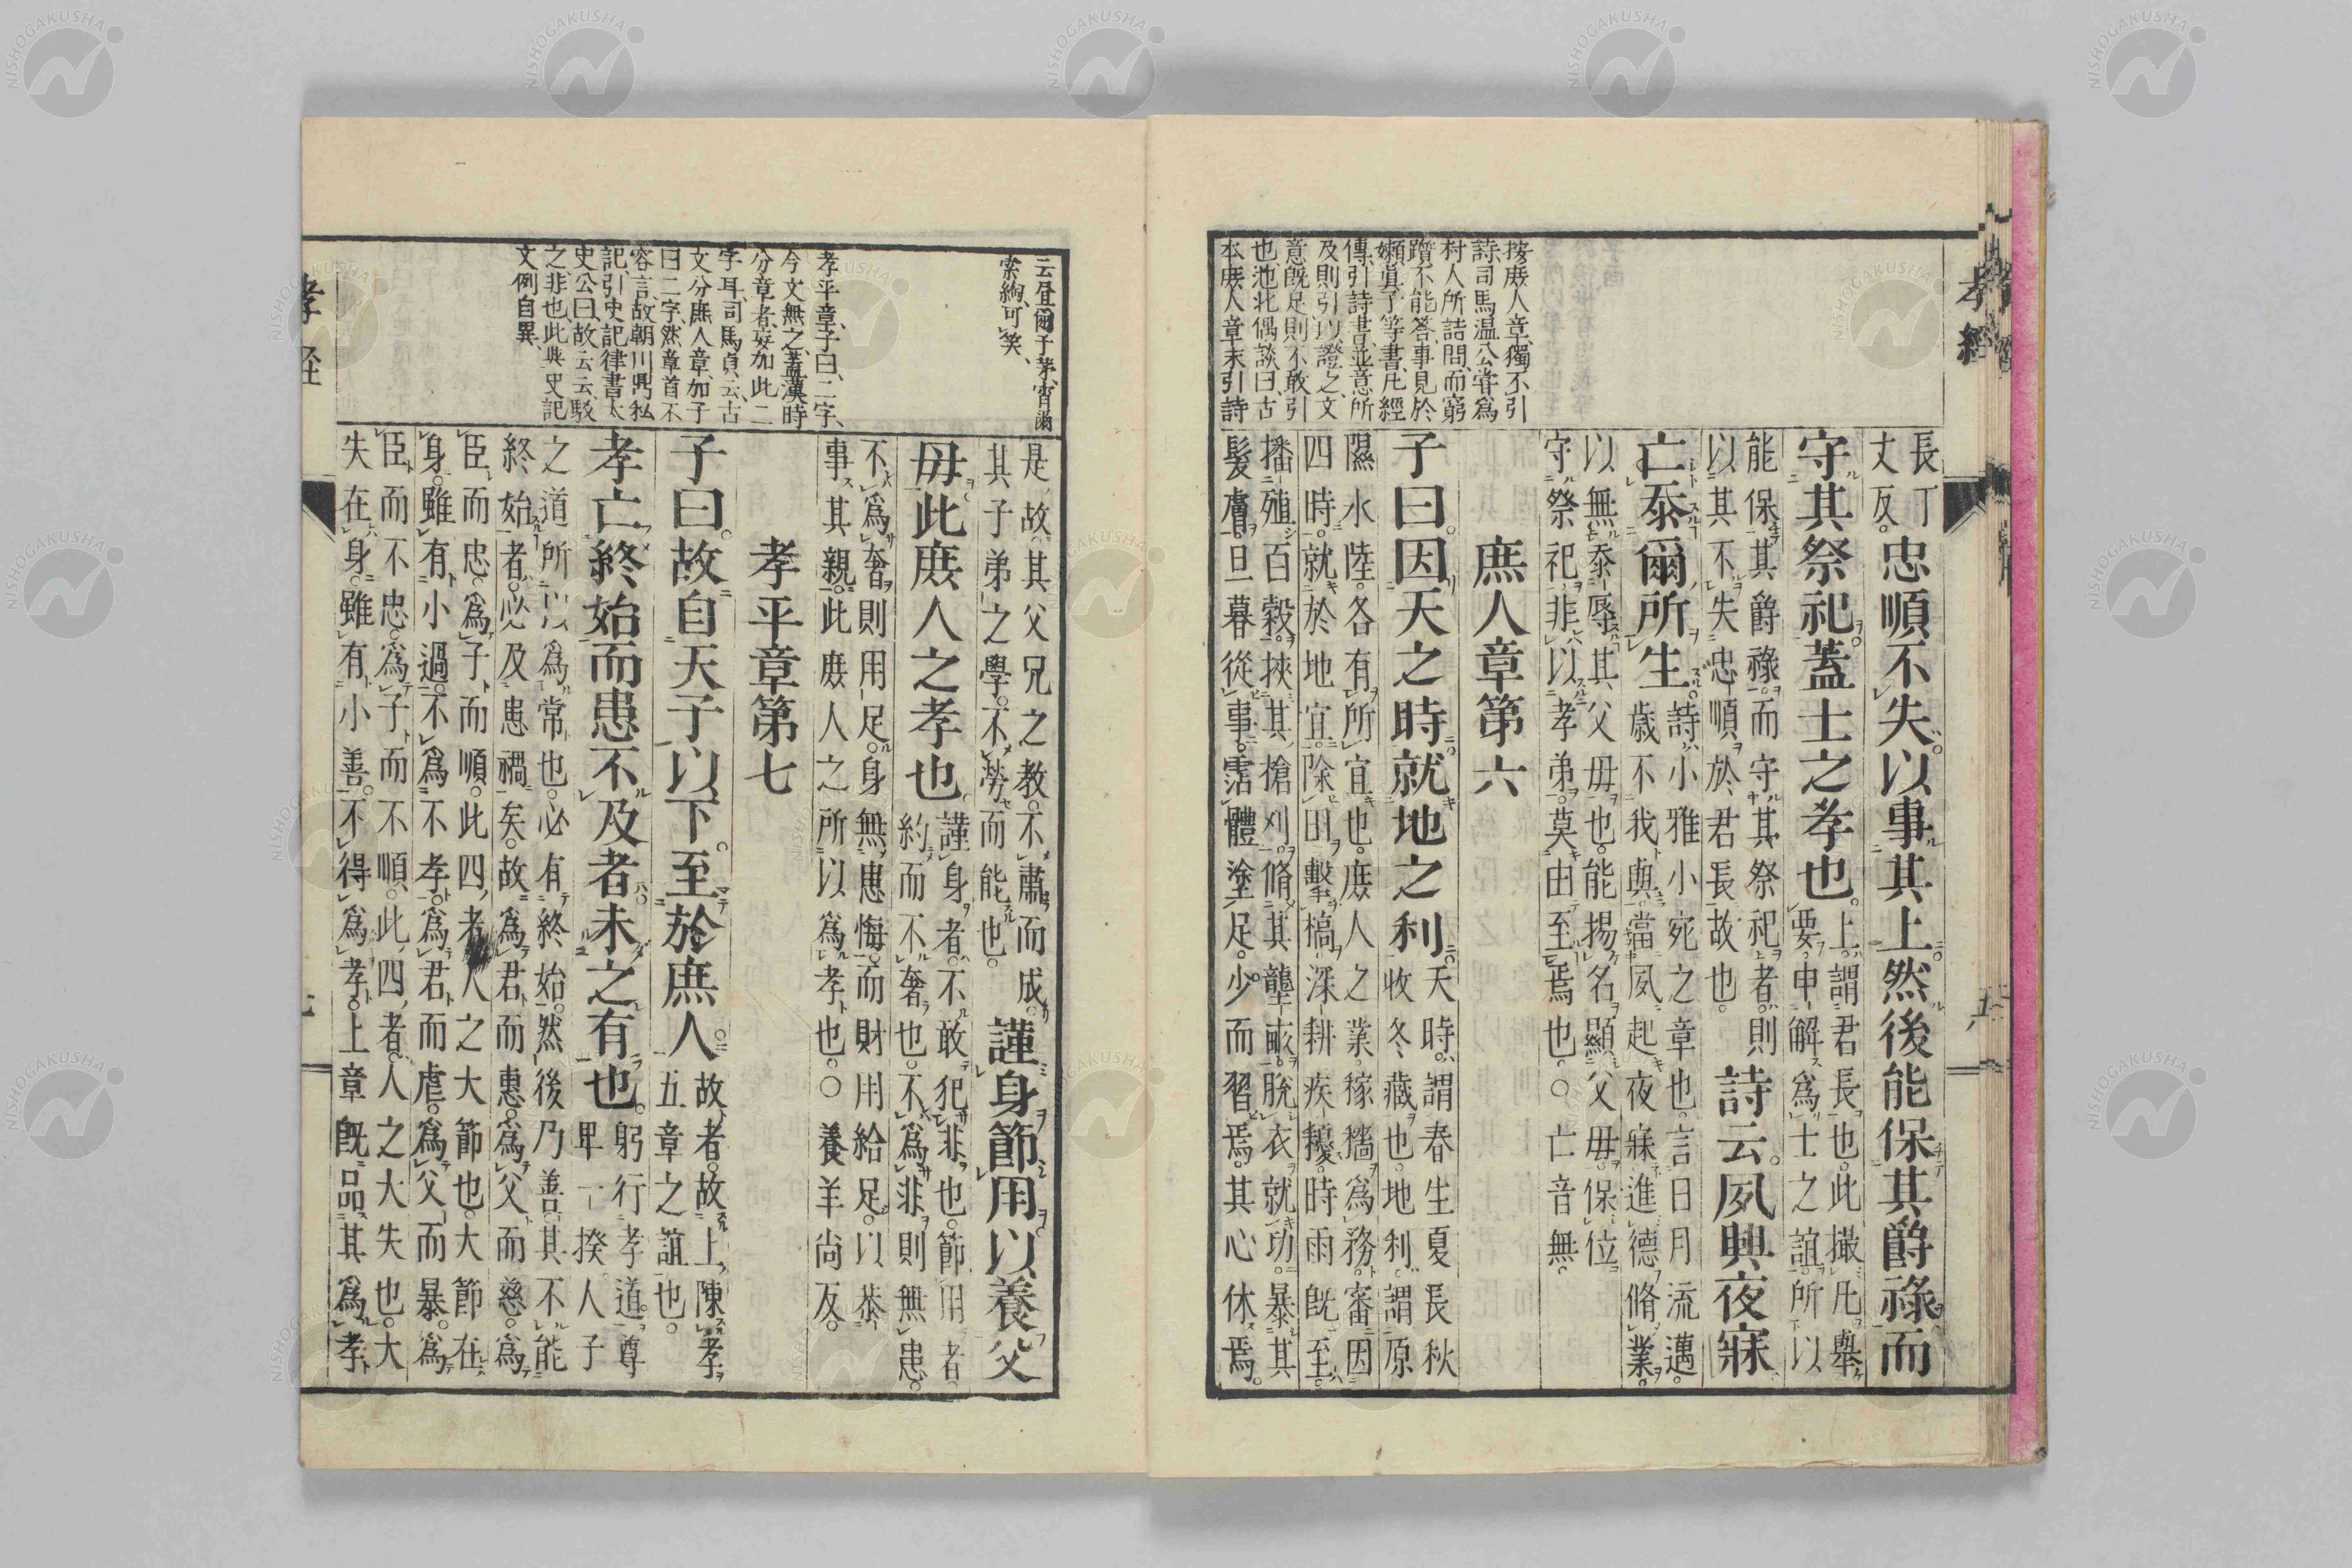 孝經
五
按庻人章、獨不引
詩、司馬温公甞爲
村人所詰問、而窮
躓不能答、事見於
嬾眞子等書、凡經
傳引詩書、並意所
及則引以證之、文
意旣足則不敢引
也、池北偶談曰、古
本庻人章末引詩
長丁
丈反。
忠順不失。以事其上。然後能保其爵祿。而
守其祭祀。蓋士之孝也。
上謂君長也。此撮凡舉
要。申解爲士之誼。所以
能保其爵祿。而守其祭祀者。則
以其不失忠順於君長故也。
詩云。夙興夜寐
亡忝爾所生。
詩小雅小宛之章也。言日月流邁。
歲不我與。當夙起夜寐。進德脩業。
以無忝辱其父毋也。能揚名顯父毋。保位
守祭祀。非以孝弟。莫由至焉也。○亡音無。
庶人章第六
子曰。因天之時。就地之利。
天時。謂春生夏長秋
收冬藏也。地利。謂原
隰水陸。各有所宜也。庻人之業。稼穡爲務。審因
四時。就於地宜。除田擊槁。深耕疾耰。時雨旣至。
播殖百穀。挾其槍刈。脩其壟畝。脫衣就功。暴其
髮膚。旦暮從事。霑體塗足。少而習焉。其心休焉。
云晝爾于茅、宵爾
索綯、可笑、
孝平章、子曰、二字、
今文無之、蓋漢時
分章者、妄加此二
字耳、司馬貞云、古
文分庶人章、加子
曰二字、然章首不
容言故、朝川鼎私
記、引史記律書太
史公曰、故云云、駁
之、非也、此與史記
文例自異、
是。故其父兄之教。不肅而成。
其子弟之學。不勞而能也。
謹身節用。以養父
毋。此庻人之孝也。
謹身者。不敢犯非也。節用者。
約而不奢也。不爲非。則無患。
不爲奢。則用足。身無患悔。而財用給足。以恭
事其親。此庻人之所以爲孝也。○養羊尚反。
孝平章第七
子曰。故自天子以下。至於庶人。
故者。故上陳孝
五章之誼也。
孝亡終始。而患不及者。未之有也。
躬行孝道。尊
卑一揆。人子
之道所以爲常也。必有終始。然後乃善。其不能
終始者。必及患禍矣。故爲君而惠。爲父而慈。爲
臣而忠。爲子而順。此四者。人之大節也。大節在
身。雖有小過。不爲不孝。爲君而虐。爲父而暴。爲
臣而不忠。爲子而不順。此四者。人之大失也。大
失在身。雖有小善。不得爲孝。上章旣品其爲孝
孝經
NISHOGAKUSHA